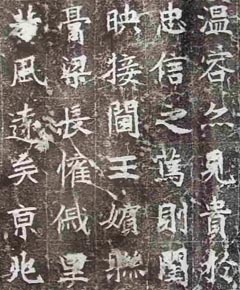 温容見貴於
忠信之篤則閨
映接王嬪聯
梁長里
芳風遠矣京兆